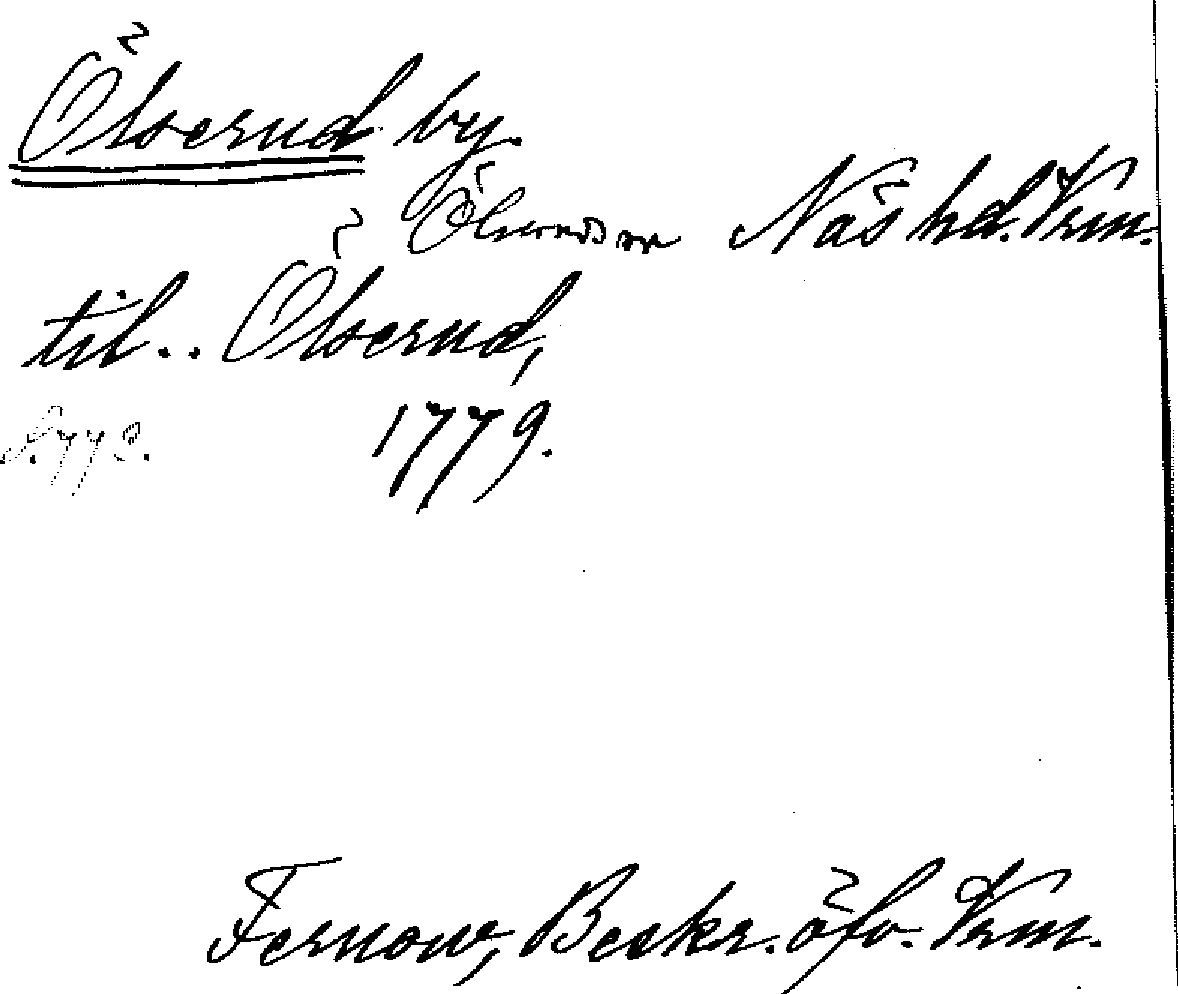 Ölserud by.
Ölserud sn Näs hd. Vrm.
til.. Ölserud,
S. 773. 1779.
Fernow, Beskr. öfv. Vrm.